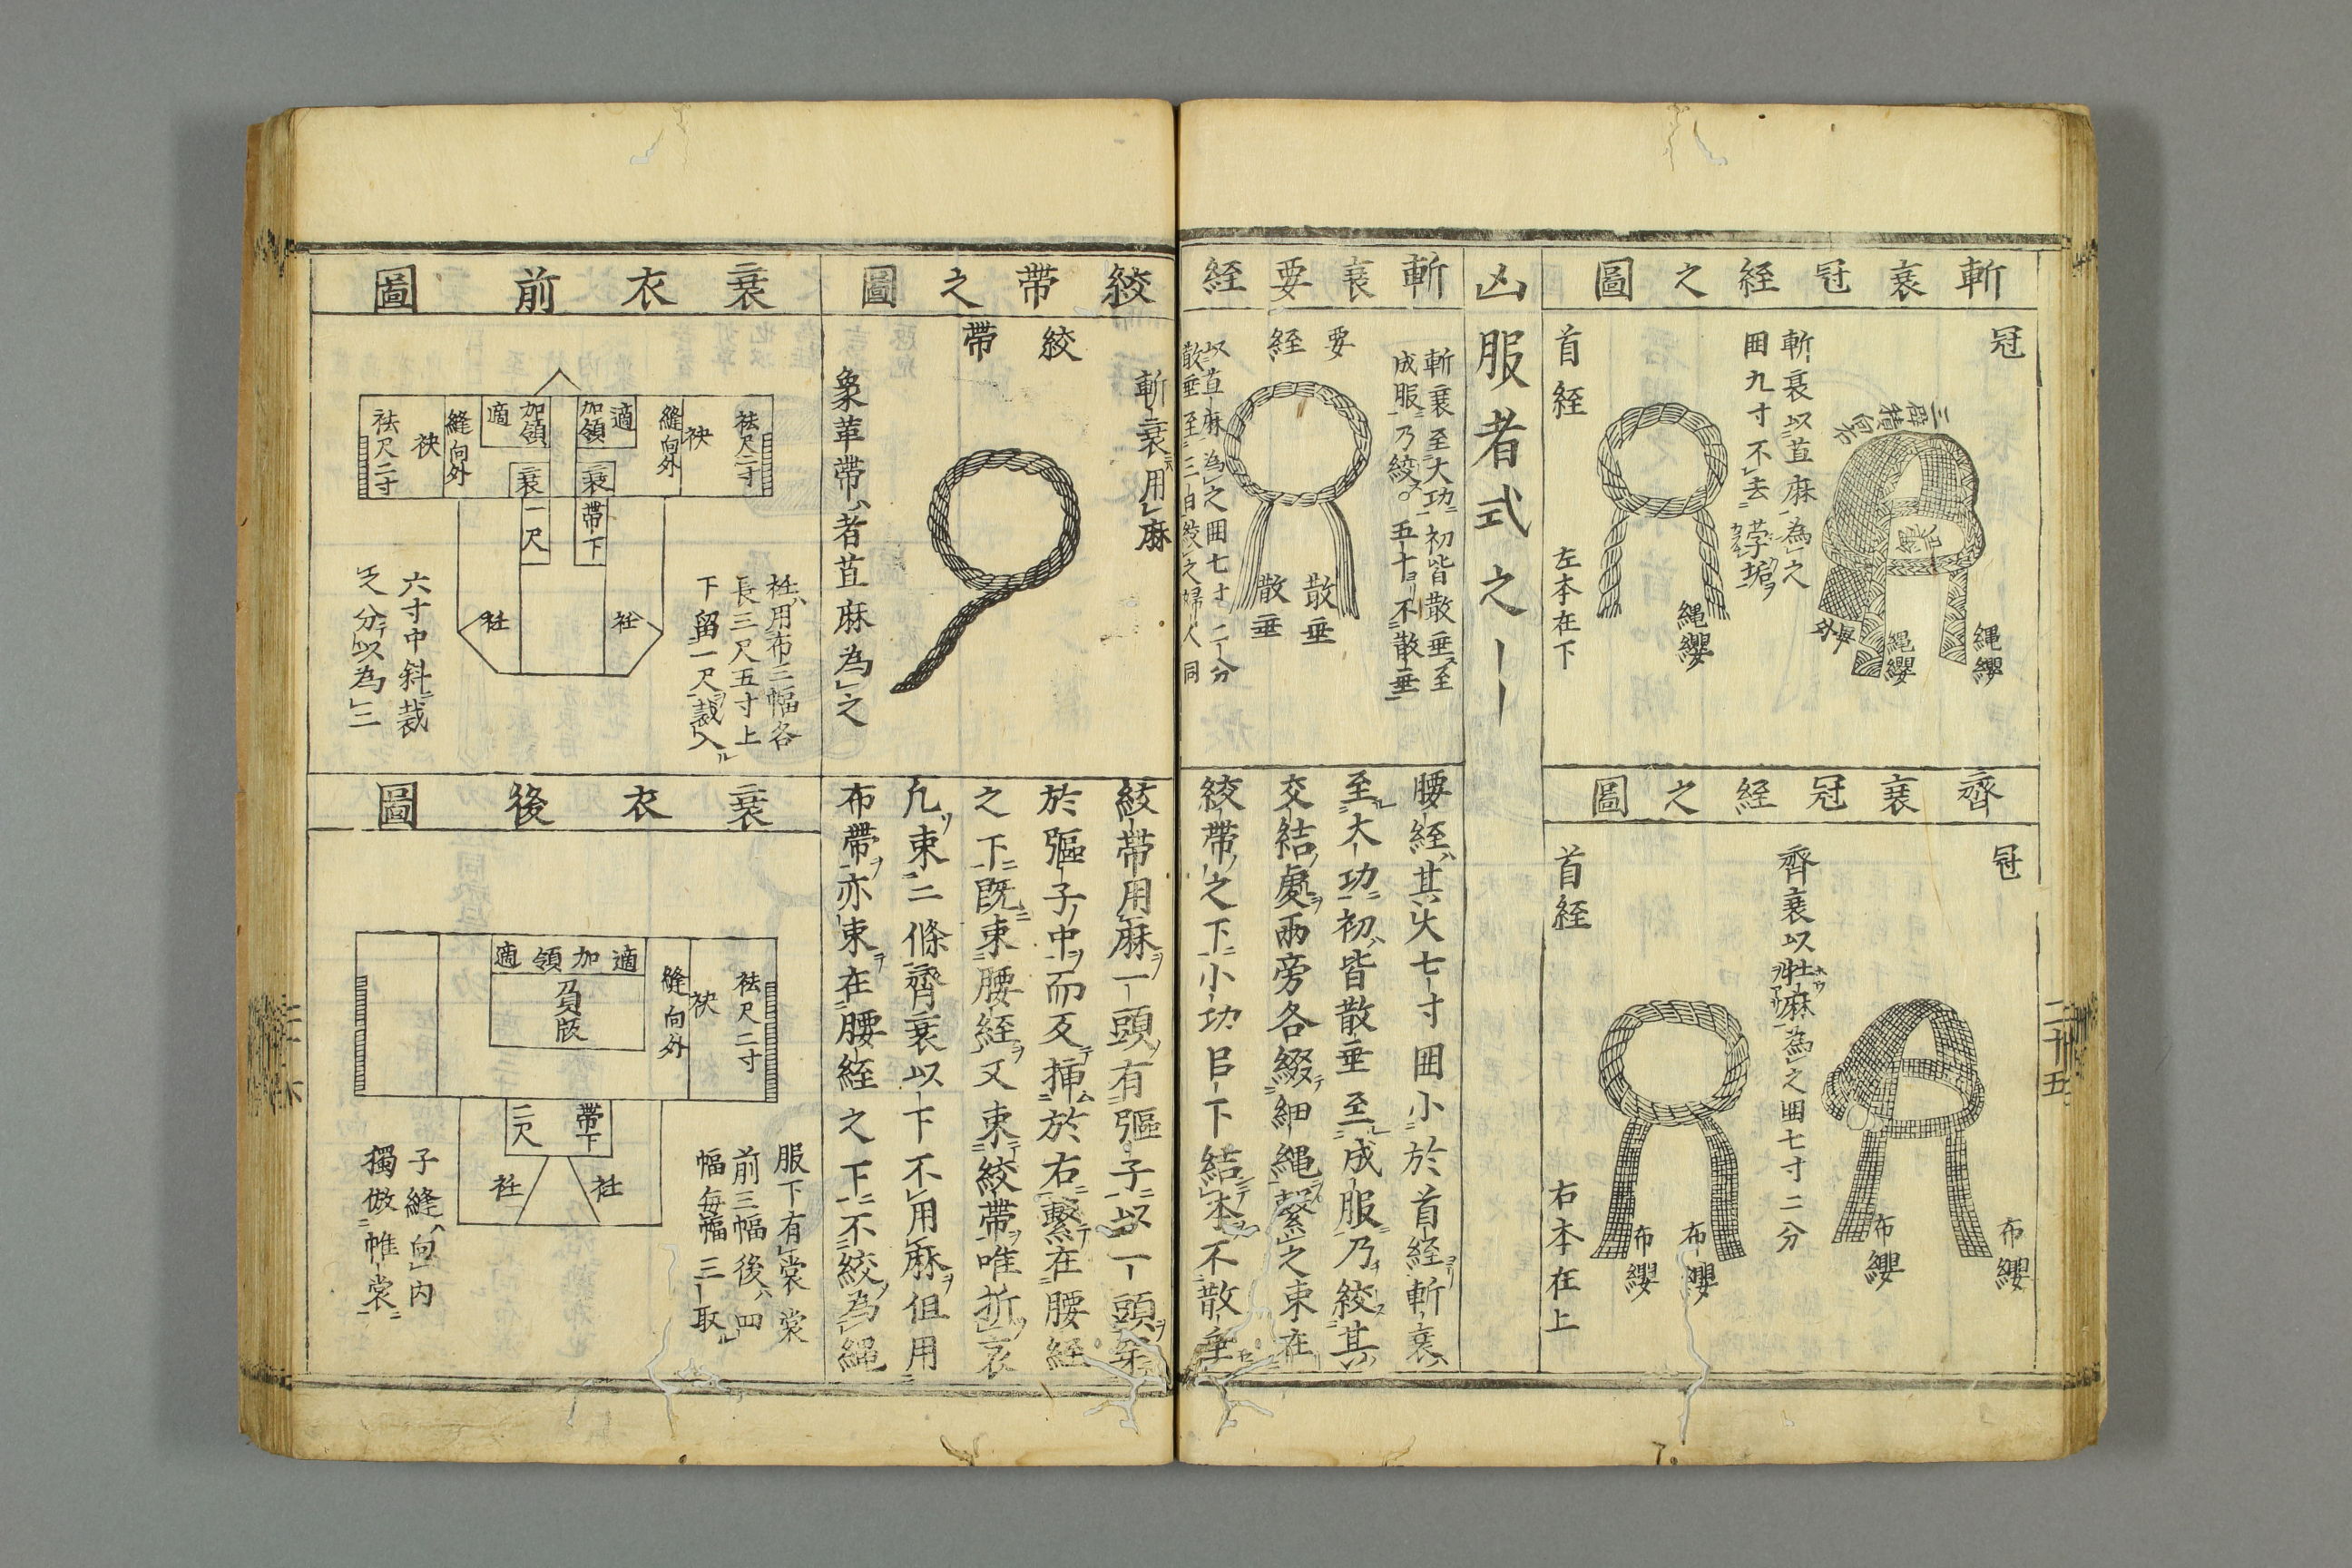 斬衰冠絰之圖
冠
三辟積向右
衰
外畢
繩纓
繩纓
斬衰以苴麻為之
囲九寸不去莩垢
首絰
繩纓
左本在下
齊衰冠絰之圖
冠
布纓
布纓
齊衰以牡麻為之囲七寸二分
首絰
布纓
布纓
右本在上
二十五
凶服者式之
斬衰要絰
斬衰至大功初皆散垂至
成服乃絞。五十不散垂
要絰
散垂
散垂
苴麻為之囲七寸二分
散垂至三日絞之婦人同
腰絰其大七寸囲小於首絰斬衰
至大功初皆散垂至成服乃絞其
交結處兩旁各綴細繩繫之束在
絞帶之下小功㠯下結本不散垂
絞帶之圖
絞帶
斬衰用麻
象革帶者苴麻為之
絞帶用麻一頭有彄子以一頭穿
於彄子中而反插於右繫在腰絰
之下既束腰絰又束絞帶唯折衰
凡束二條齊衰以下不用麻但用
布帶亦束在腰絰之下不絞為繩
衰衣前圖
袪尺二寸
袂
縫向外
適
加領
衰
帶下
加領
適
衰
一尺
縫向外
袂
袪尺二寸
衽
衽
衽用布三幅各
長三尺五寸上
下留一尺裁入
六寸中斜裁
之分以為三
衰衣後圖
袪尺二寸
袂
縫向外
適加領適
負版
帶下
二尺
衽
衽
服下有裳裳
前三幅後四
幅每幅三取
子縫向内
獨倣帷裳